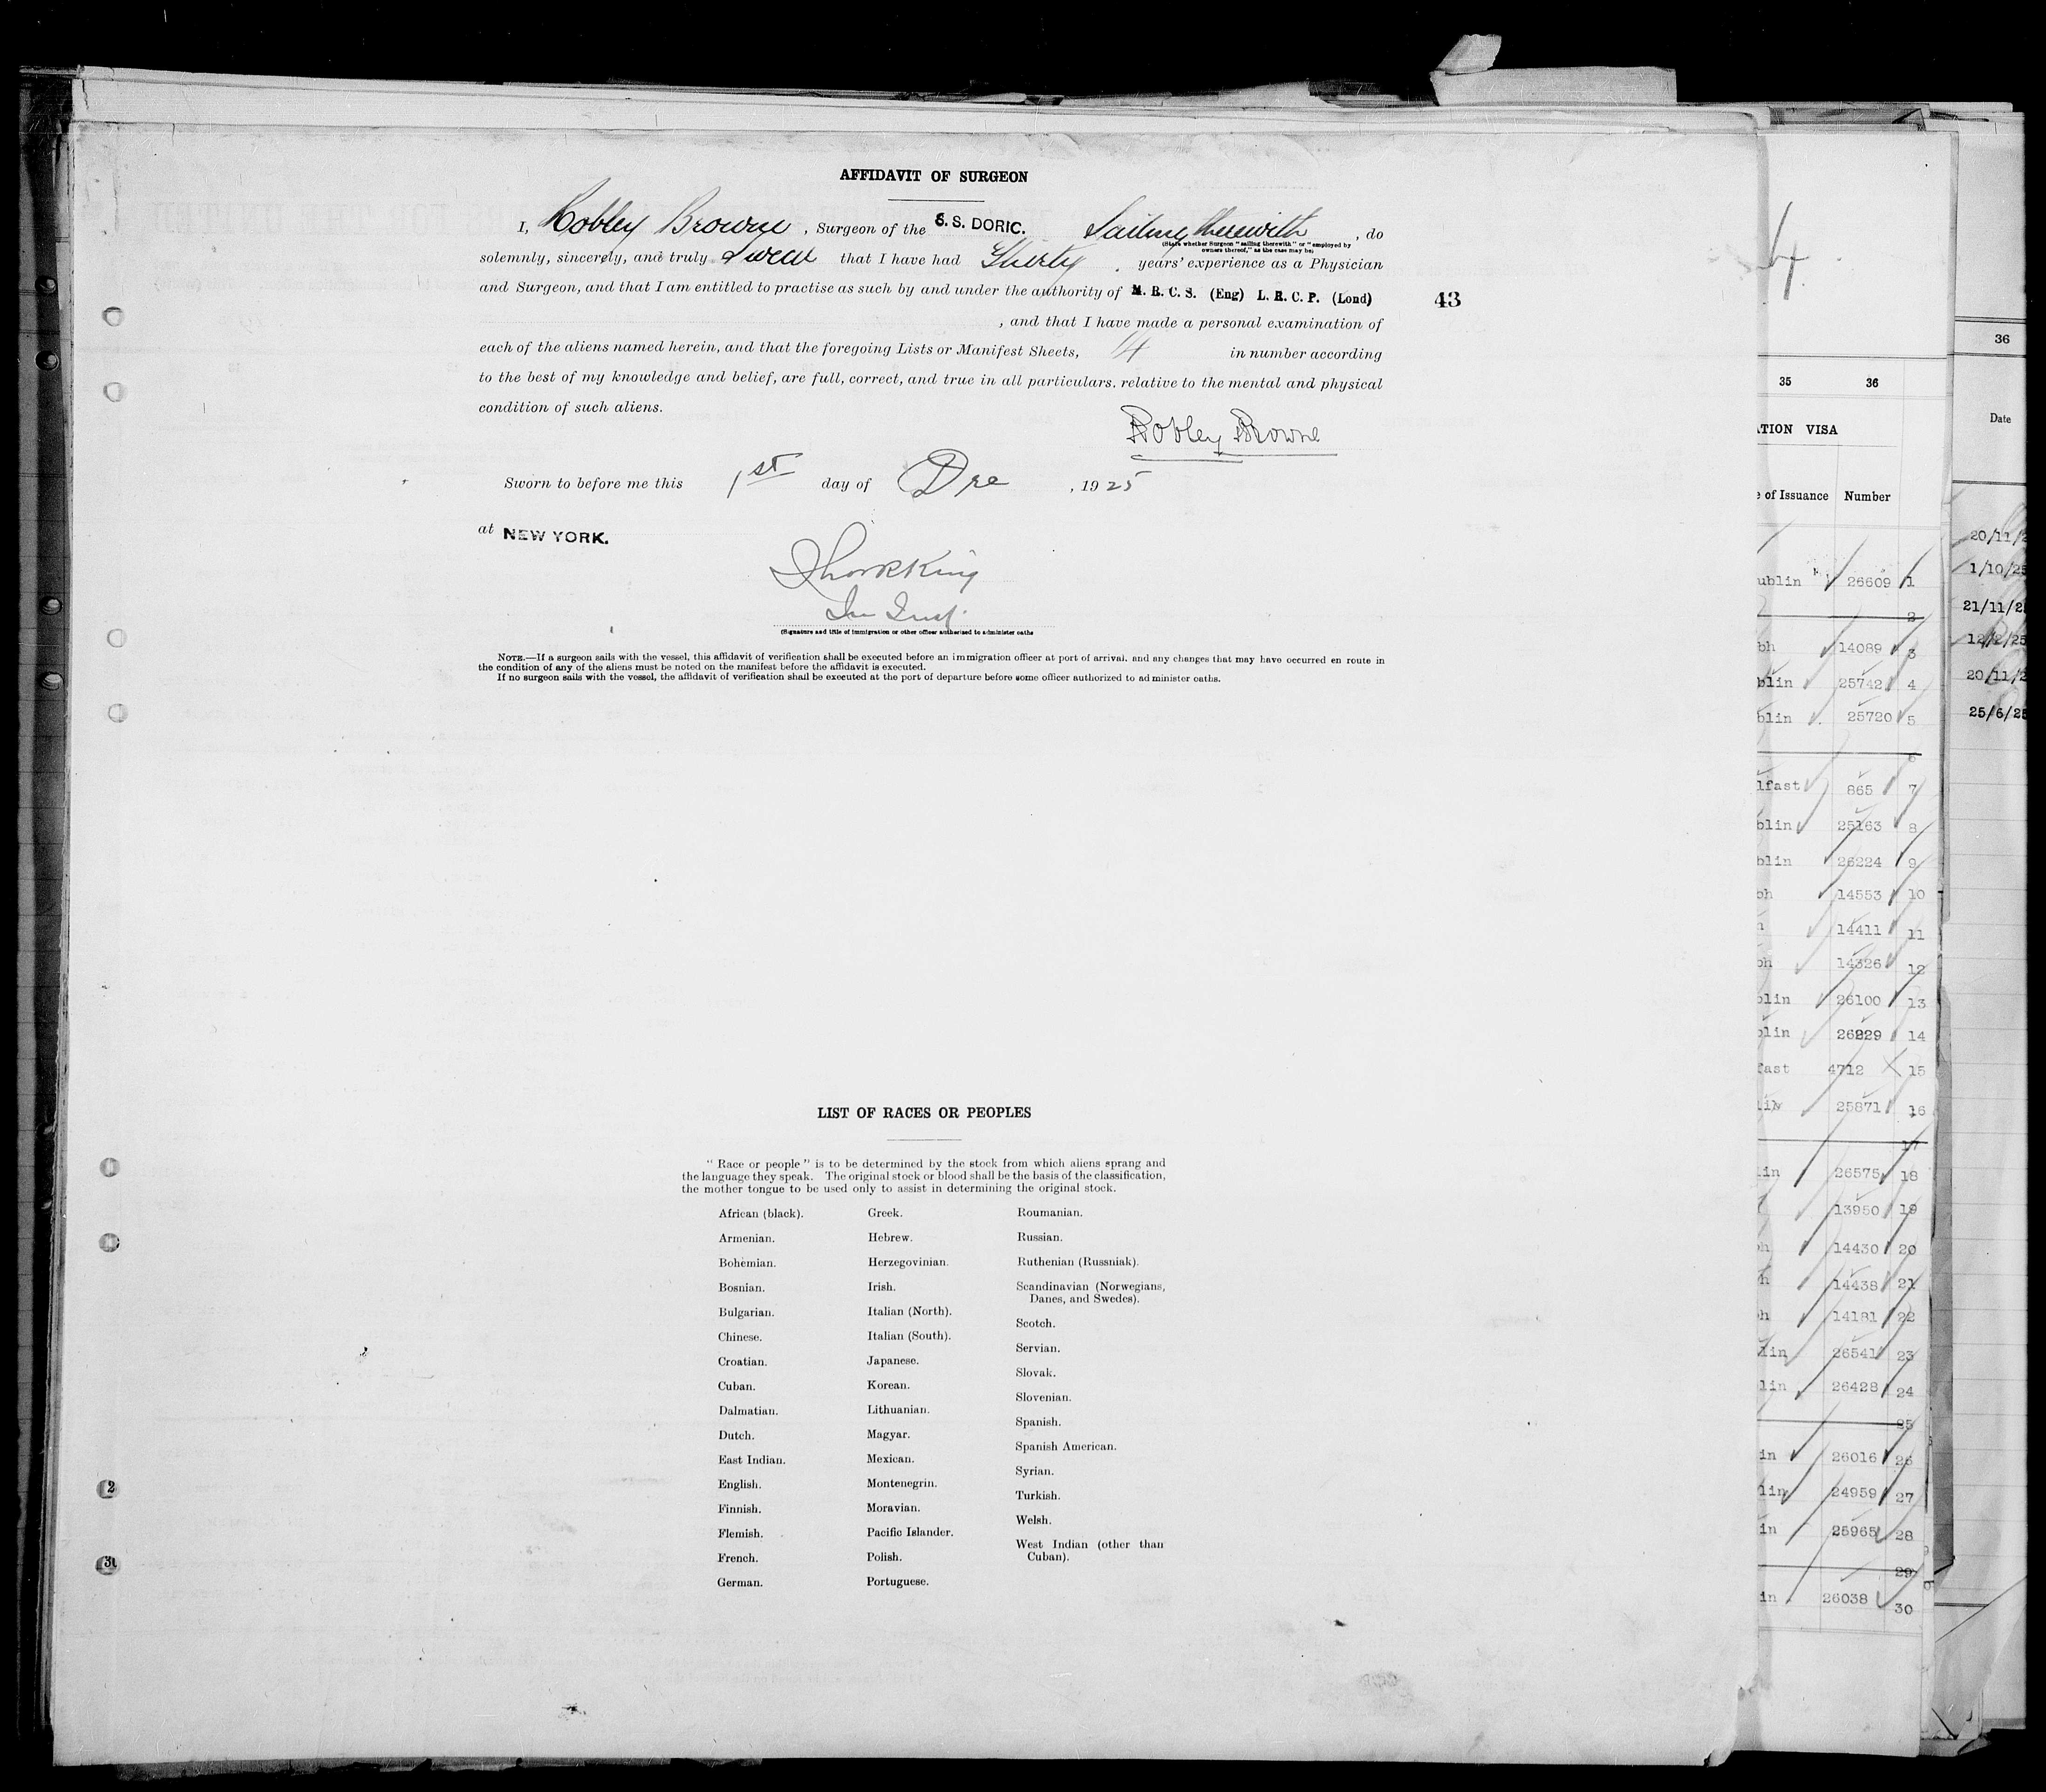 AFFIDAVIT OF SURGEON
I, Robley Browne, Surgeon of the S. S. DORIC. Sailing therewith, do
(State whether Surgeon "sailing therewith" or "employed by
owners thereof," as the case may be)
solemnly, sincerely, and truly swear that I have had Thirty years' experience as a Physician
and Surgeon, and that I am entitled to practise as such by and under the authority of M. R. C. S. (Eng) L. R. C. P. (Lond)
43
, and that I have made a personal examination of
each of the aliens named herein, and that the foregoing Lists or Manifest Sheets, 14 in number according
to the best of my knowledge and belief, are full, correct, and true in all particulars. relative to the mental and physical
condition of such aliens.
Robley Browne
Sworn to before me this 1st day of Dec, 1925
at NEW YORK.
(Signature and title of immigration or other officer authorised to administer oaths
NOTE.—If a surgeon sails with the vessel, this affidavit of verification shall be executed before an immigration officer at port of arrival. and any changes that may have occurred en route in
the condition of any of the aliens must be noted on the manifest before the affidavit is executed.
If no surgeon sails with the vessel, the affidavit of verification shall be executed at the port of departure before some officer authorized to administer oaths.
LIST OF RACES OR PEOPLES
"Race or people" is to be determined by the stock from which aliens sprang and
the language they speak. The original stock or blood shall be the basis of the classification,
the mother tongue to be used only to assist in determining the original stock.
African (black).
Armenian.
Bohemian.
Bosnian.
Bulgarian.
Chinese.
Croatian.
Cuban.
Dalmatian.
Dutch.
East Indian.
English.
Finnish.
Flemish.
French.
German.
Greek.
Hebrew.
Herzegovinian.
Irish.
Italian (North).
Italian (South).
Japanese.
Korean.
Lithuanian.
Magyar.
Mexican.
Montenegrin.
Moravian.
Pacific Islander.
Polish.
Portuguese.
Roumanian.
Russian.
Ruthenian (Russniak).
Scandinavian (Norwegians,
Danes, and Swedes).
Scotch.
Servian.
Slovak.
Slovenian.
Spanish.
Spanish American.
Syrian.
Turkish.
Welsh.
West Indian (other than
Cuban).
35 36
ATION VISA
e of Issuance Number
ublin 26609 1
2
bh 14089 3
blin 25742 4
blin 25720 5
6
lfast 865 7
blin 25163 8
blin 26224 9
bh 14553 10
h 14411 11
bh 14326 12
blin 26100 13
blin 26229 14
fast 4712 15
lin 25871 16
17
lin 26575 18
13950 19
h 14430 20
h 14438 21
h 14181 22
lin 26541 23
lin 26428 24
25
in 26016 26
lin 24959 27
in 25965 28
29
in 26038 30
36
Date
20/11/2
1/10/25
21/11/2
12/2/25
20/11/2
25/6/25